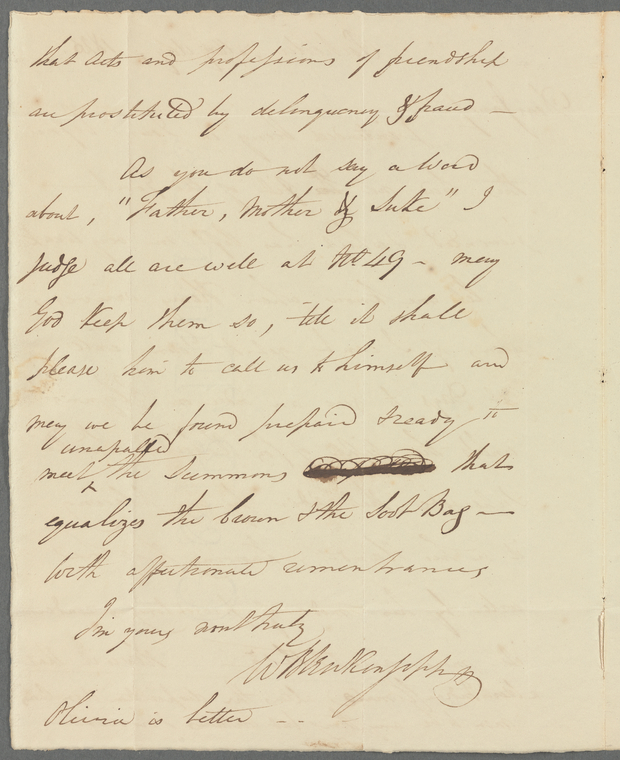 that acts and professions of friendship
are prostituted by delinquency & fraud —
As you do not say a word
about, "Father, Mother & Luke" I
judge all are well at No 49 — may
God keep them so, 'till it shall
please him to call us to himself and
may we be found prepaid & ready to
unapalled
meet the summons that
equalizes the Crown & the Soot Bag —
With affectionate remembrances
I'm yours most truly
Olivia is better — —